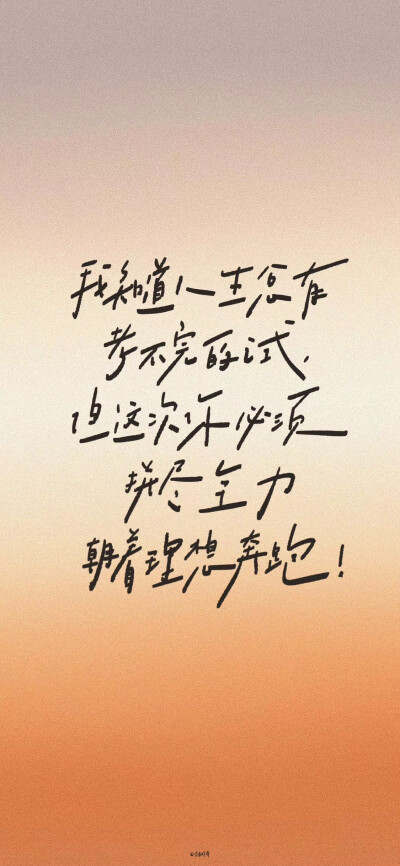 我知道人生总有
考不完的试，
但这次你必须
拼尽全力
朝着理想奔跑！